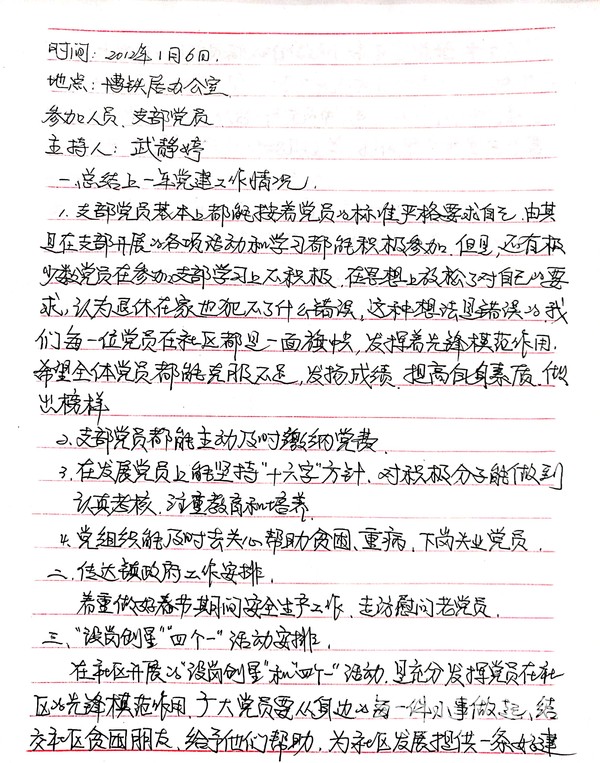 时间:2012年1月6日.
地点:博铁居办公室
参加人员、支部党员
主持人:武静婷
一.总结上一年党建工作情况.
1.支部党员基本上都能按着党员的标准严格要求自己.由其
是在支部开展的各项活动和学习都能积极参加.但是,还有极
少数党员在参加支部学习上不积极.在思想上放松了对自己的要
求,认为退休在家也犯不了什么错误,这种想法是错误的.我
们每一位党员在社区都是一面旗帜,发挥着先锋模范作用.
希望全体党员都能克服不足,发扬成绩.提高自身素质.做
出榜样
2.支部党员都能主动及时缴纳党费.
3.在发展党员上能坚持"十六字"方针.对积极分子能做到
认真考核.注重教育和培养.
4.党组织能及时去关心帮助贫困、重病、下岗失业党员.
二.传达镇政府工作安排.
着重做好春节其间安全生产工作.走访慰问老党员.
三、"设岗创星""四个一"活动安排.
在社区开展的"设岗创星"和"四个一"活动.是充分发挥党员在社
区的先锋模范作用.广大党员要从身边的每一件小事做起、结
交社区贫困朋友、给予他们帮助,为社区发展提供一条好建